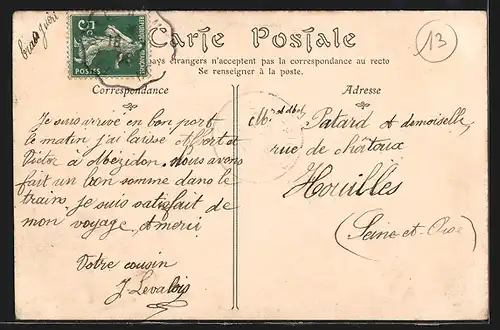 13
5c
POSTES
Carte Postale
pays étrangers n'acceptent pas la correspondance au recto
Se renseigner à la poste.
Correspondance
Je suis arrivé en bon port
le matin j'ai laissé Albert et
Victor à Mézidon. Nous avons
fait un bon somme dans le
train. je suis satisfait de
mon voyage, et merci
Votre cousin
J. Levalois
Adresse
Patard et demoiselle,
rue de châtoux
Houilles
(Seine-et-Oise)